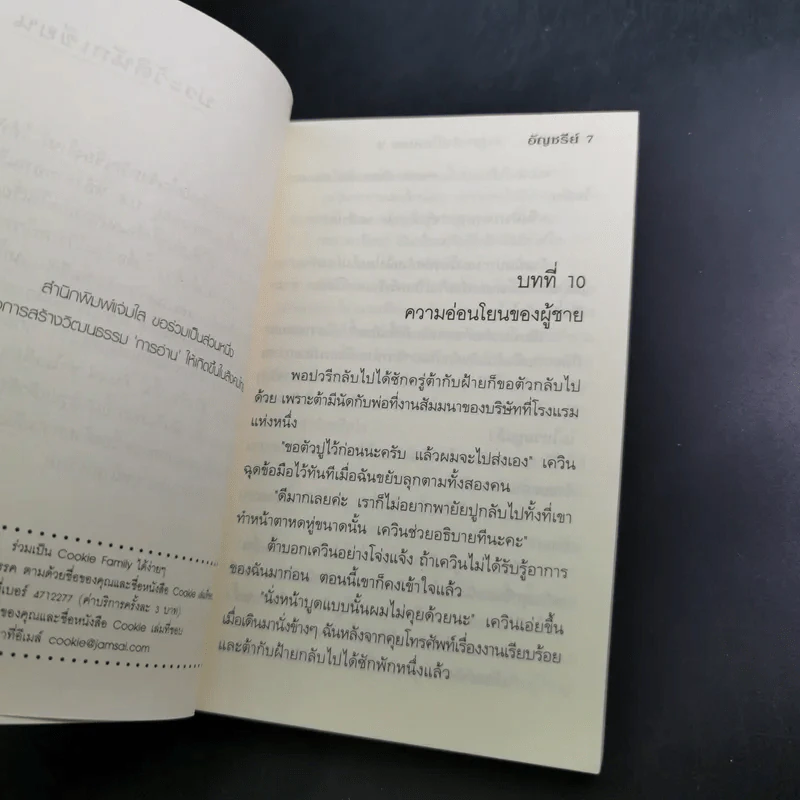 สำนักพิมพ์แจ่มใส ขอร่วมเป็นส่วนหนึ่ง
การสร้างวัฒนธรรม 'การอ่าน' ให้เกิดขึ้นในสังคมไทย
ร่วมเป็น Cookie Family ได้ง่ายๆ
ตามด้วยชื่อของคุณและชื่อหนังสือ Cookie
เบอร์ 4712277 (ค่าบริการครั้งละ 3 บาท)
ของคุณและชื่อหนังสือ Cookie เล่มที่ชอบ
ที่อีเมล์ cookie@jamsai.com
อัญชรีย์ 7
บทที่ 10
ความอ่อนโยนของผู้ชาย
พอปวรีกลับไปได้ซักครู่ต้ากับฝ้ายก็ขอตัวกลับไป
ด้วย เพราะต้ามีนัดกับพ่อที่งานสัมมนาของบริษัทที่โรงแรม
แห่งหนึ่ง
"ขอตัวปูไว้ก่อนนะครับ แล้วผมจะไปส่งเอง" เควิน
ฉุดข้อมือไว้ทันทีเมื่อฉันขยับลุกตามทั้งสองคน
"ดีมากเลยค่ะ เราก็ไม่อยากพายัยปูกลับไปทั้งที่เขา
ทำหน้าตาหดหู่ขนาดนั้น เควินช่วยอธิบายทีนะคะ"
ต้าบอกเควินอย่างโจ่งแจ้ง ถ้าเควินไม่ได้รับรู้อาการ
ของฉันมาก่อน ตอนนี้เขาก็คงเข้าใจแล้ว
"นั่งหน้าบูดแบบนั้นผมไม่คุยด้วยนะ" เควินเอ่ยขึ้น
เมื่อเดินมานั่งข้างๆ ฉันหลังจากคุยโทรศัพท์เรื่องงานเรียบร้อย
และต้ากับฝ้ายกลับไปได้ซักพักหนึ่งแล้ว